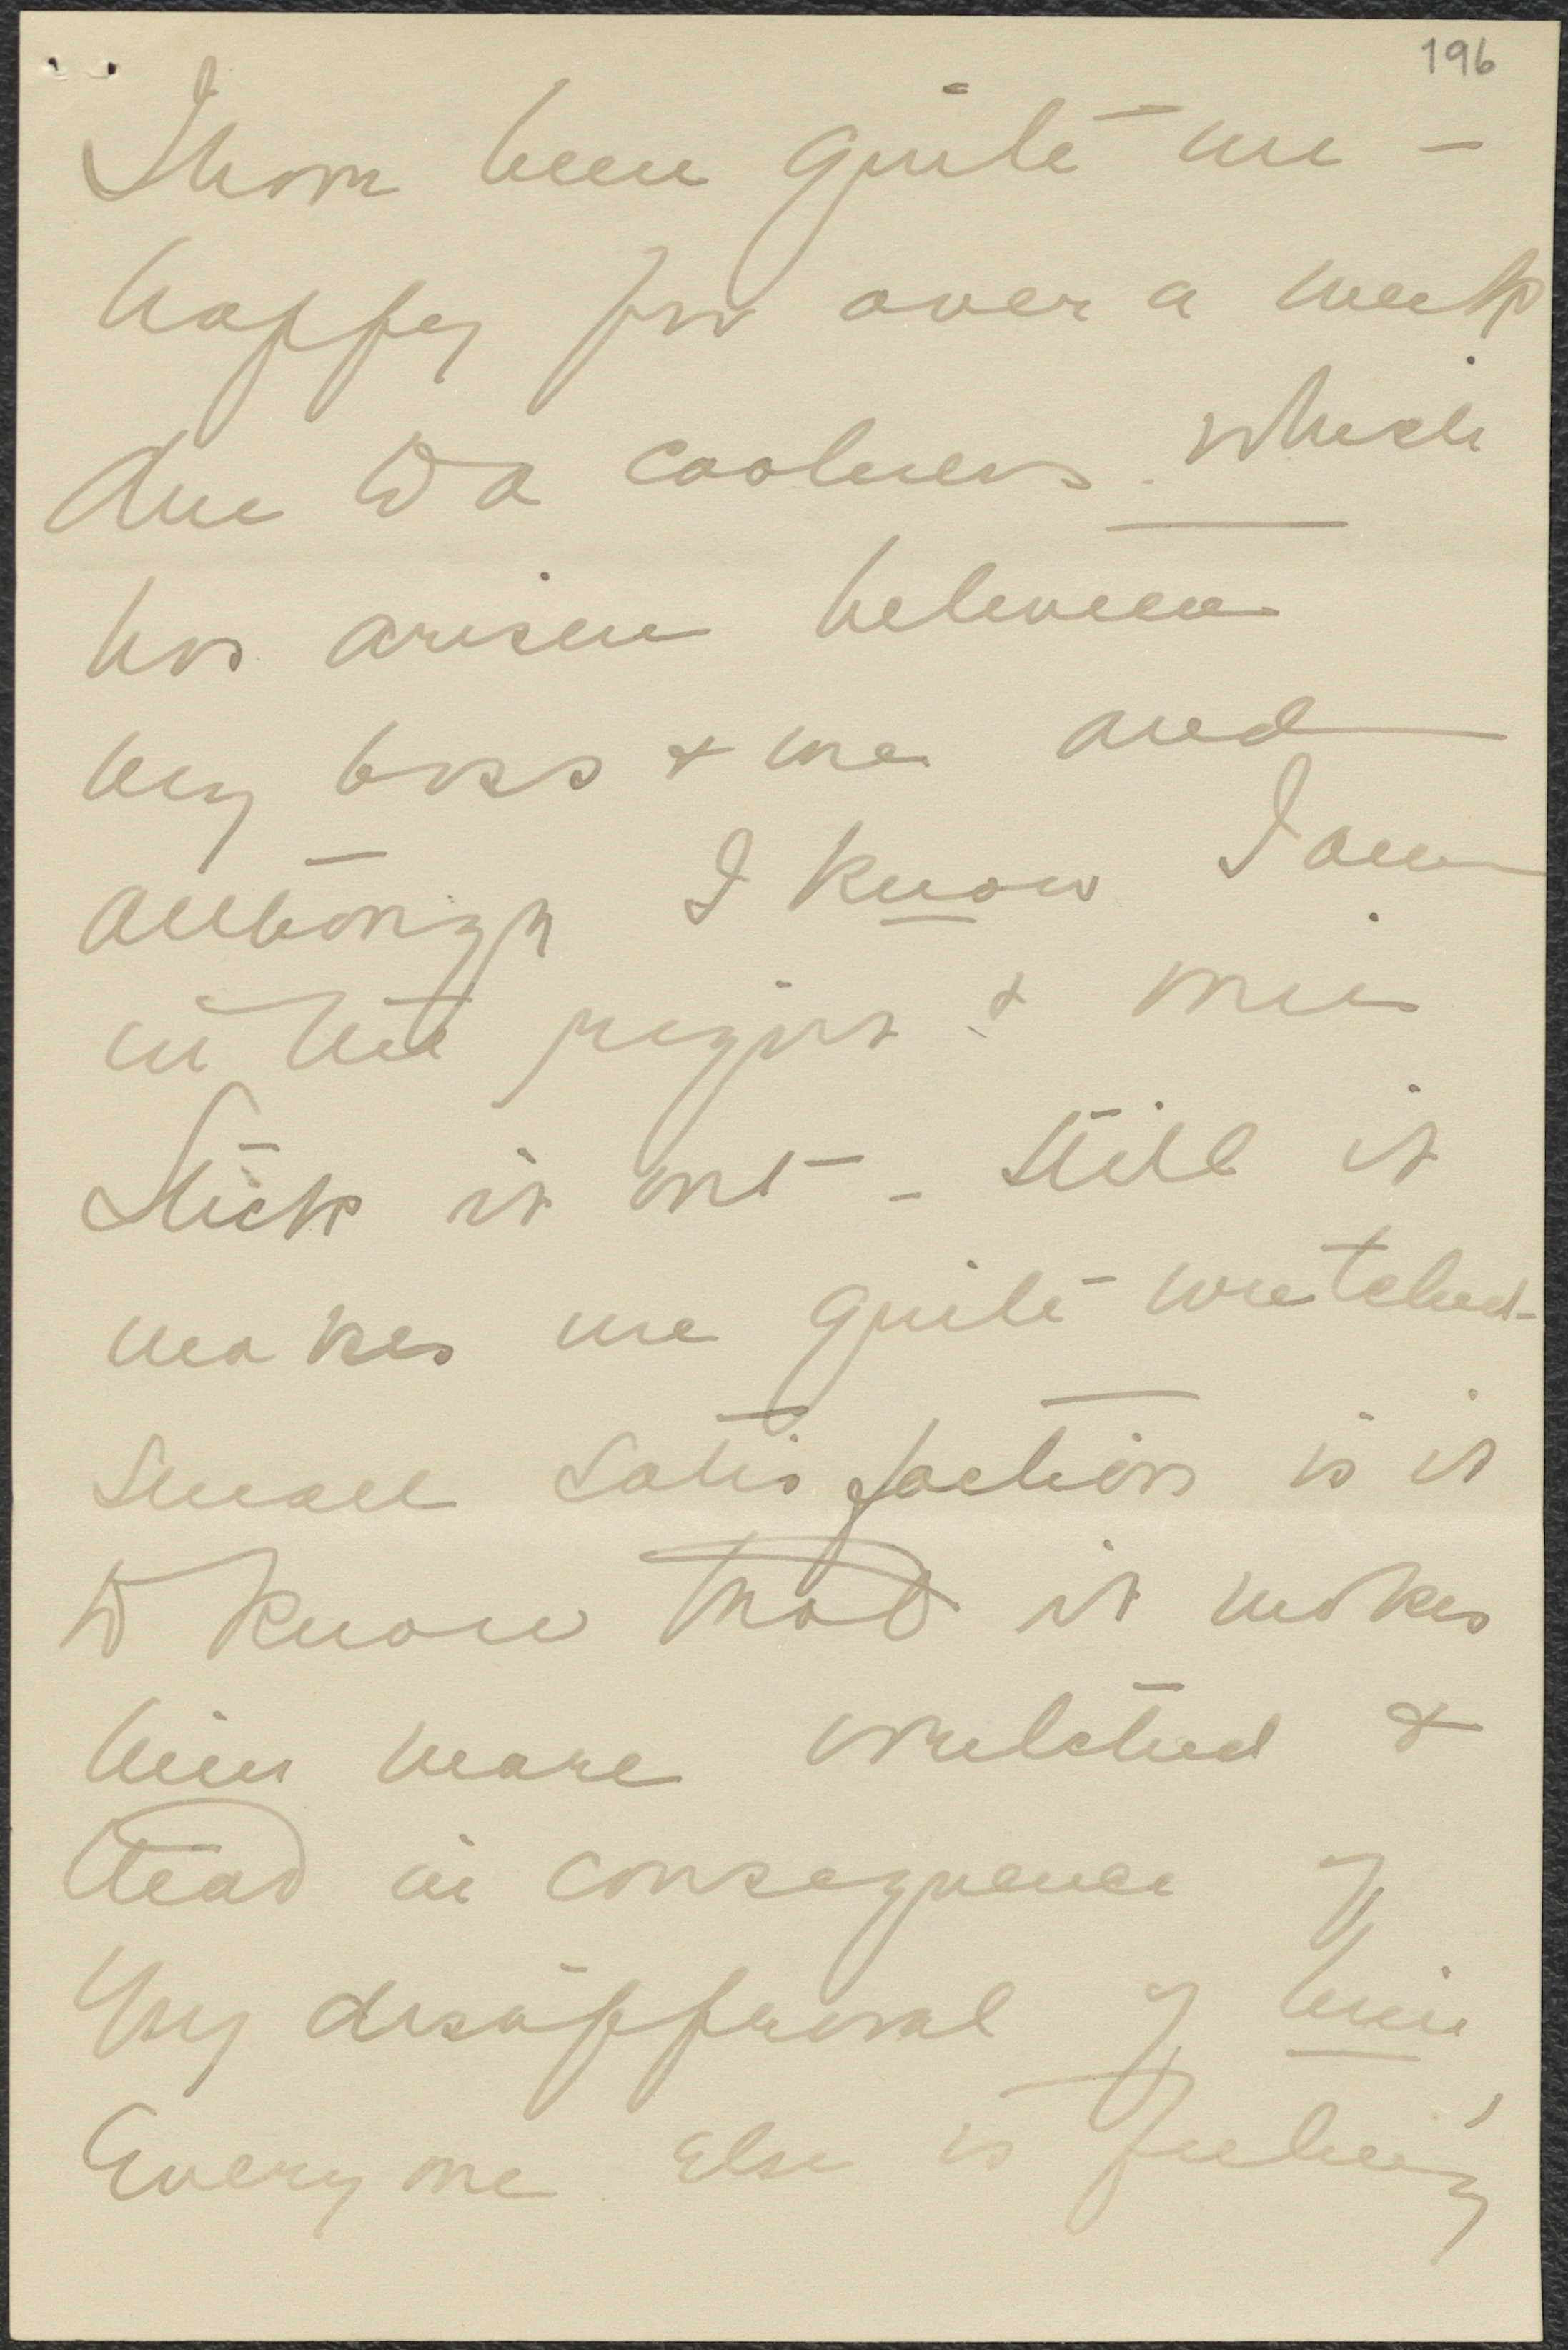 196
I have been quite un-
happy for over a week
due to a coolness which
has arisen between
my boss & me and
although I know I am
in the right & will
stick it out - still it
makes me quite wretched -
Small satisfaction is it
to know that it makes
him more wretched &
tead in consequence of
my disapproval of him
Everyone else is feeling